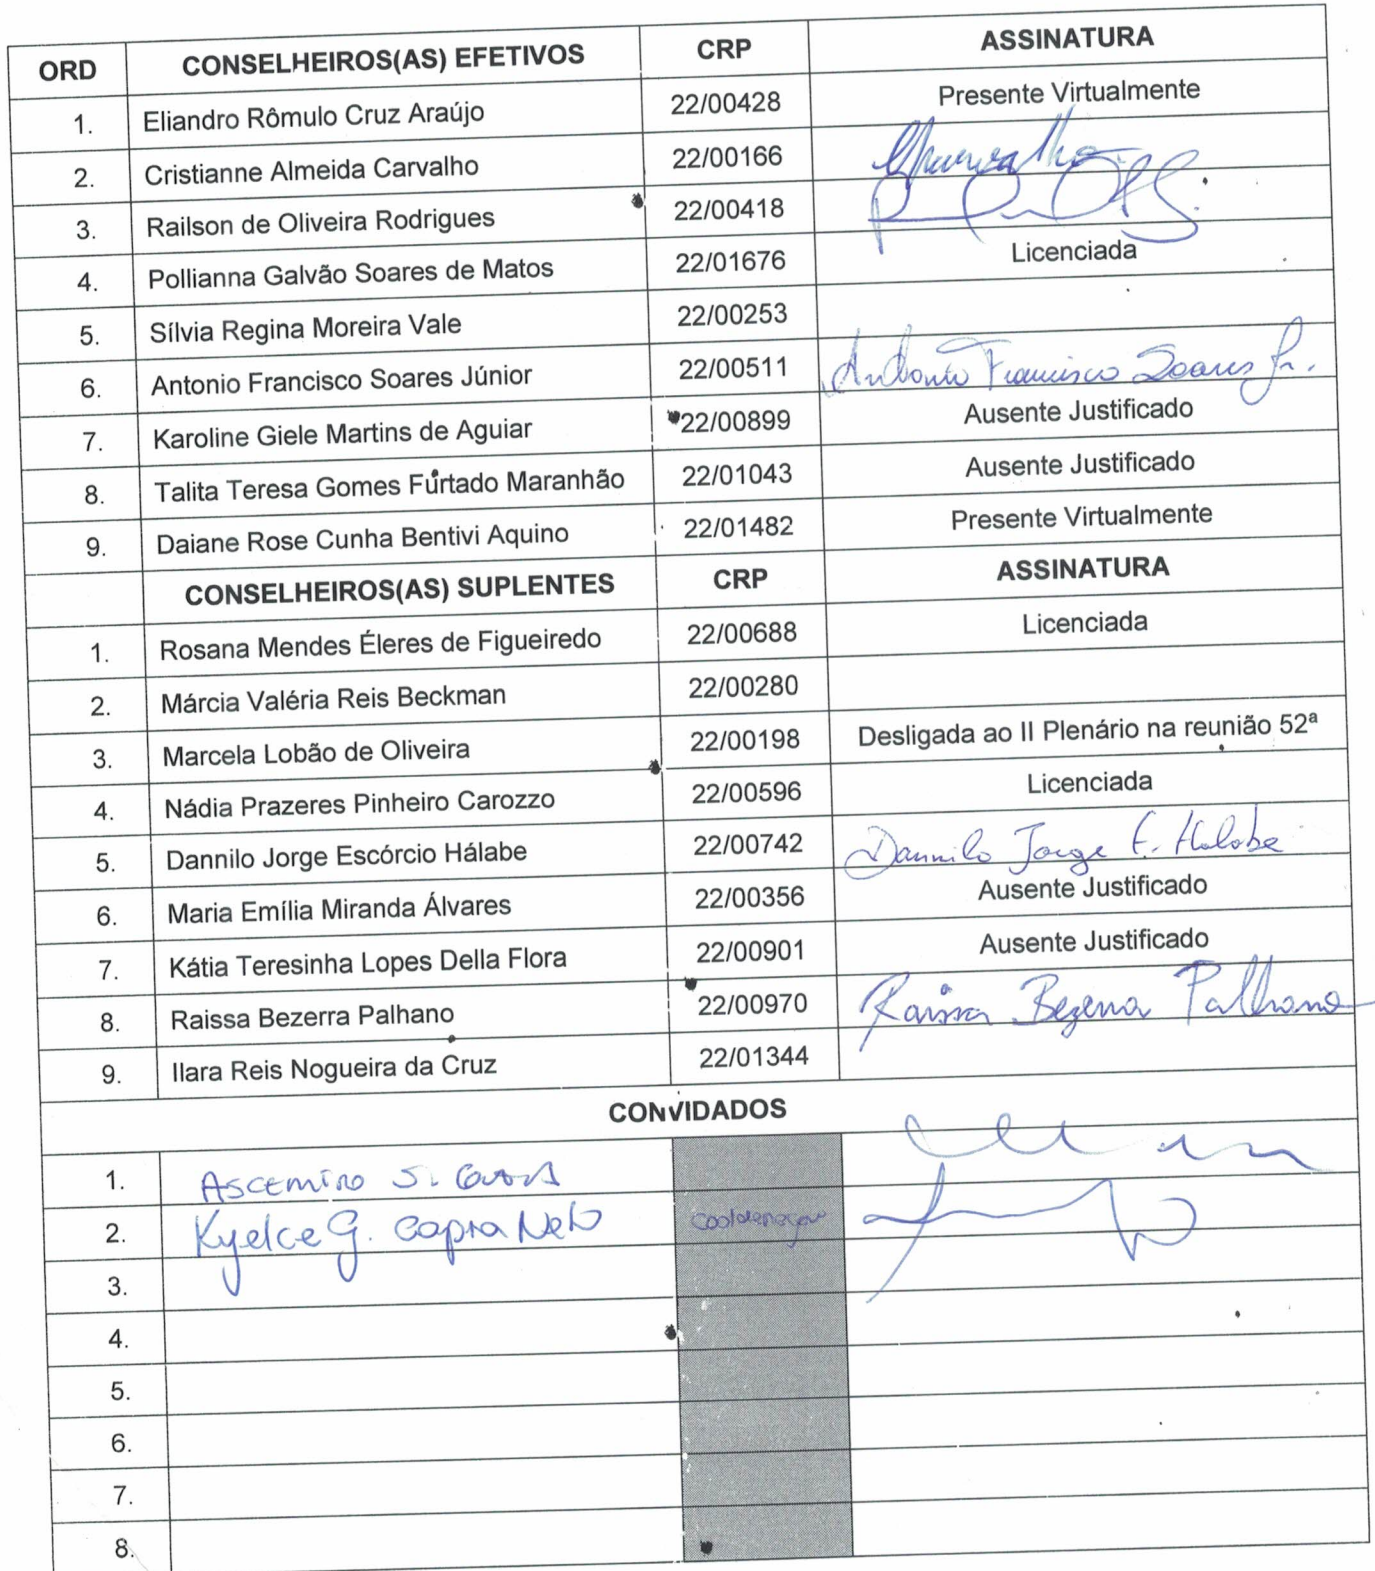 ORD CONSELHEIROS(AS) EFETIVOS CRP ASSINATURA
1. Eliandro Rômulo Cruz Araújo 22/00428 Presente Virtualmente
2. Cristianne Almeida Carvalho 22/00166
3. Railson de Oliveira Rodrigues 22/00418
4. Pollianna Galvão Soares de Matos 22/01676 Licenciada
5. Sílvia Regina Moreira Vale 22/00253
6. Antonio Francisco Soares Júnior 22/00511 Antonio Francisco Soares Jr.
7. Karoline Giele Martins de Aguiar 22/00899 Ausente Justificado
8. Talita Teresa Gomes Furtado Maranhão 22/01043 Ausente Justificado
9. Daiane Rose Cunha Bentivi Aquino 22/01482 Presente Virtualmente
CONSELHEIROS(AS) SUPLENTES CRP ASSINATURA
1. Rosana Mendes Éleres de Figueiredo 22/00688 Licenciada
2. Márcia Valéria Reis Beckman 22/00280
3. Marcela Lobão de Oliveira 22/00198 Desligada ao II Plenário na reunião 52ª
4. Nádia Prazeres Pinheiro Carozzo 22/00596 Licenciada
5. Dannilo Jorge Escórcio Hálabe 22/00742 Dannilo Jorge E. Halabe
6. Maria Emília Miranda Álvares 22/00356 Ausente Justificado
7. Kátia Teresinha Lopes Della Flora 22/00901 Ausente Justificado
8. Raissa Bezerra Palhano 22/00970 Raissa Bezerra Palhano
9. Ilara Reis Nogueira da Cruz 22/01344
CONVIDADOS
1. Ascemiro S.
2. Kyelce G. Capra Neto
3.
4.
5.
6.
7.
8.